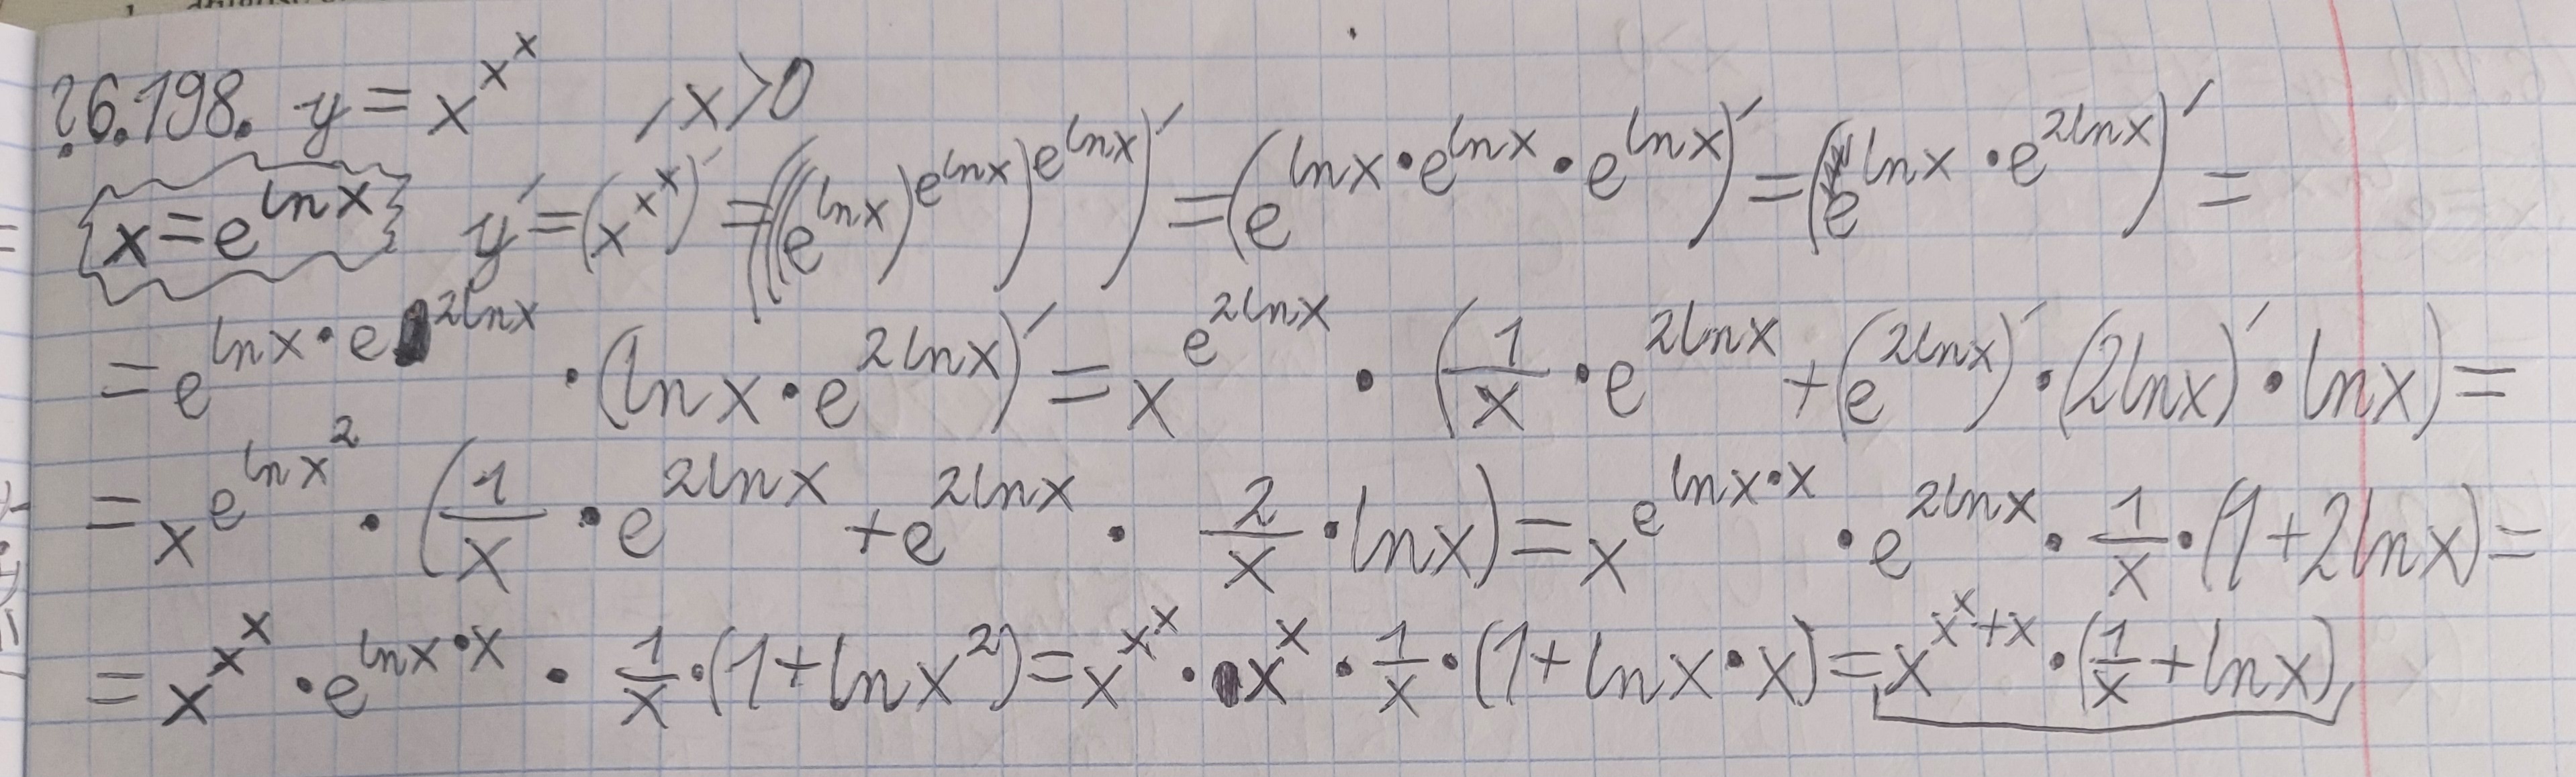 26.198. y = x^{x^x} , x>0
x = e^{ln x} y' = (x^{x^x})' = (((e^{ln x})^{e^{ln x}})^{e^{ln x}})' = (e^{ln x · e^{ln x} · e^{ln x}})' = (e^{ln x · e^{2ln x}})' =
= e^{ln x · e^{2ln x}} · (ln x · e^{2ln x})' = x^{e^{2ln x}} · (1/x · e^{2ln x} + (e^{2ln x})' · (2ln x)' · ln x) =
= x^{e^{ln x^2}} · (1/x · e^{2ln x} + e^{2ln x} · 2/x · ln x) = x^{e^{ln x · x}} · e^{2ln x} · 1/x · (1+2ln x) =
= x^{x^x} · e^{ln x · x} · 1/x · (1+ln x^2) = x^{x^x} · x^x · 1/x · (1+ln x · x) = x^{x^x+x} · (1/x + ln x)